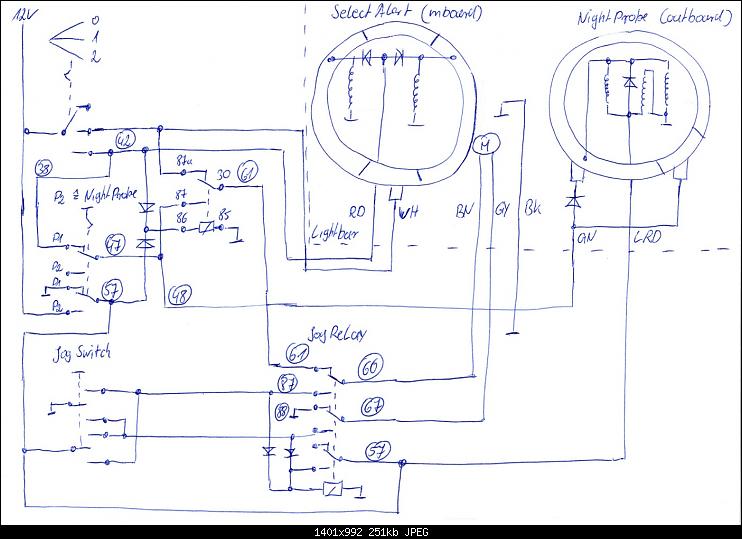 12V
0
1
2
Select Alert (inboard)
Night Probe (outboard)
42
38
P2 ≙ NightProbe
87a
30
61
87
86
85
P1
P2
P1
P2
47
57
48
Lightbar
RD
WH
M
BN
GY
BK
GN
LRD
Jog Switch
Jog Relay
61
60
87
88
67
57
1401x992 251kb JPEG